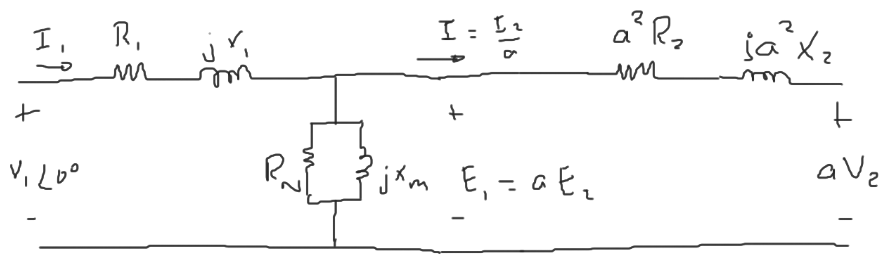 I₁ R₁ jx₁ I = I₂/a a²R₂ ja²X₂
+ + +
V₁∠0° jxm E₁ = aE₂ aV₂
- - -